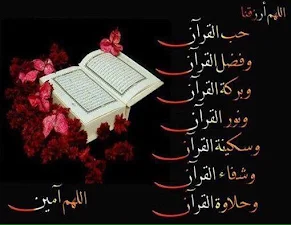 اللهم أرزقنا
حب القرآن
وفضل القرآن
وبركة القرآن
ونور القرآن
وسكينة القرآن
وشفاء القرآن
وحلاوة القرآن
اللهم آمين